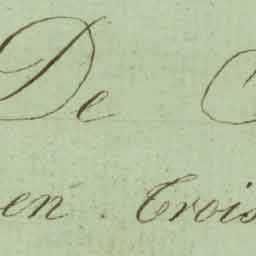 De
en. Trois